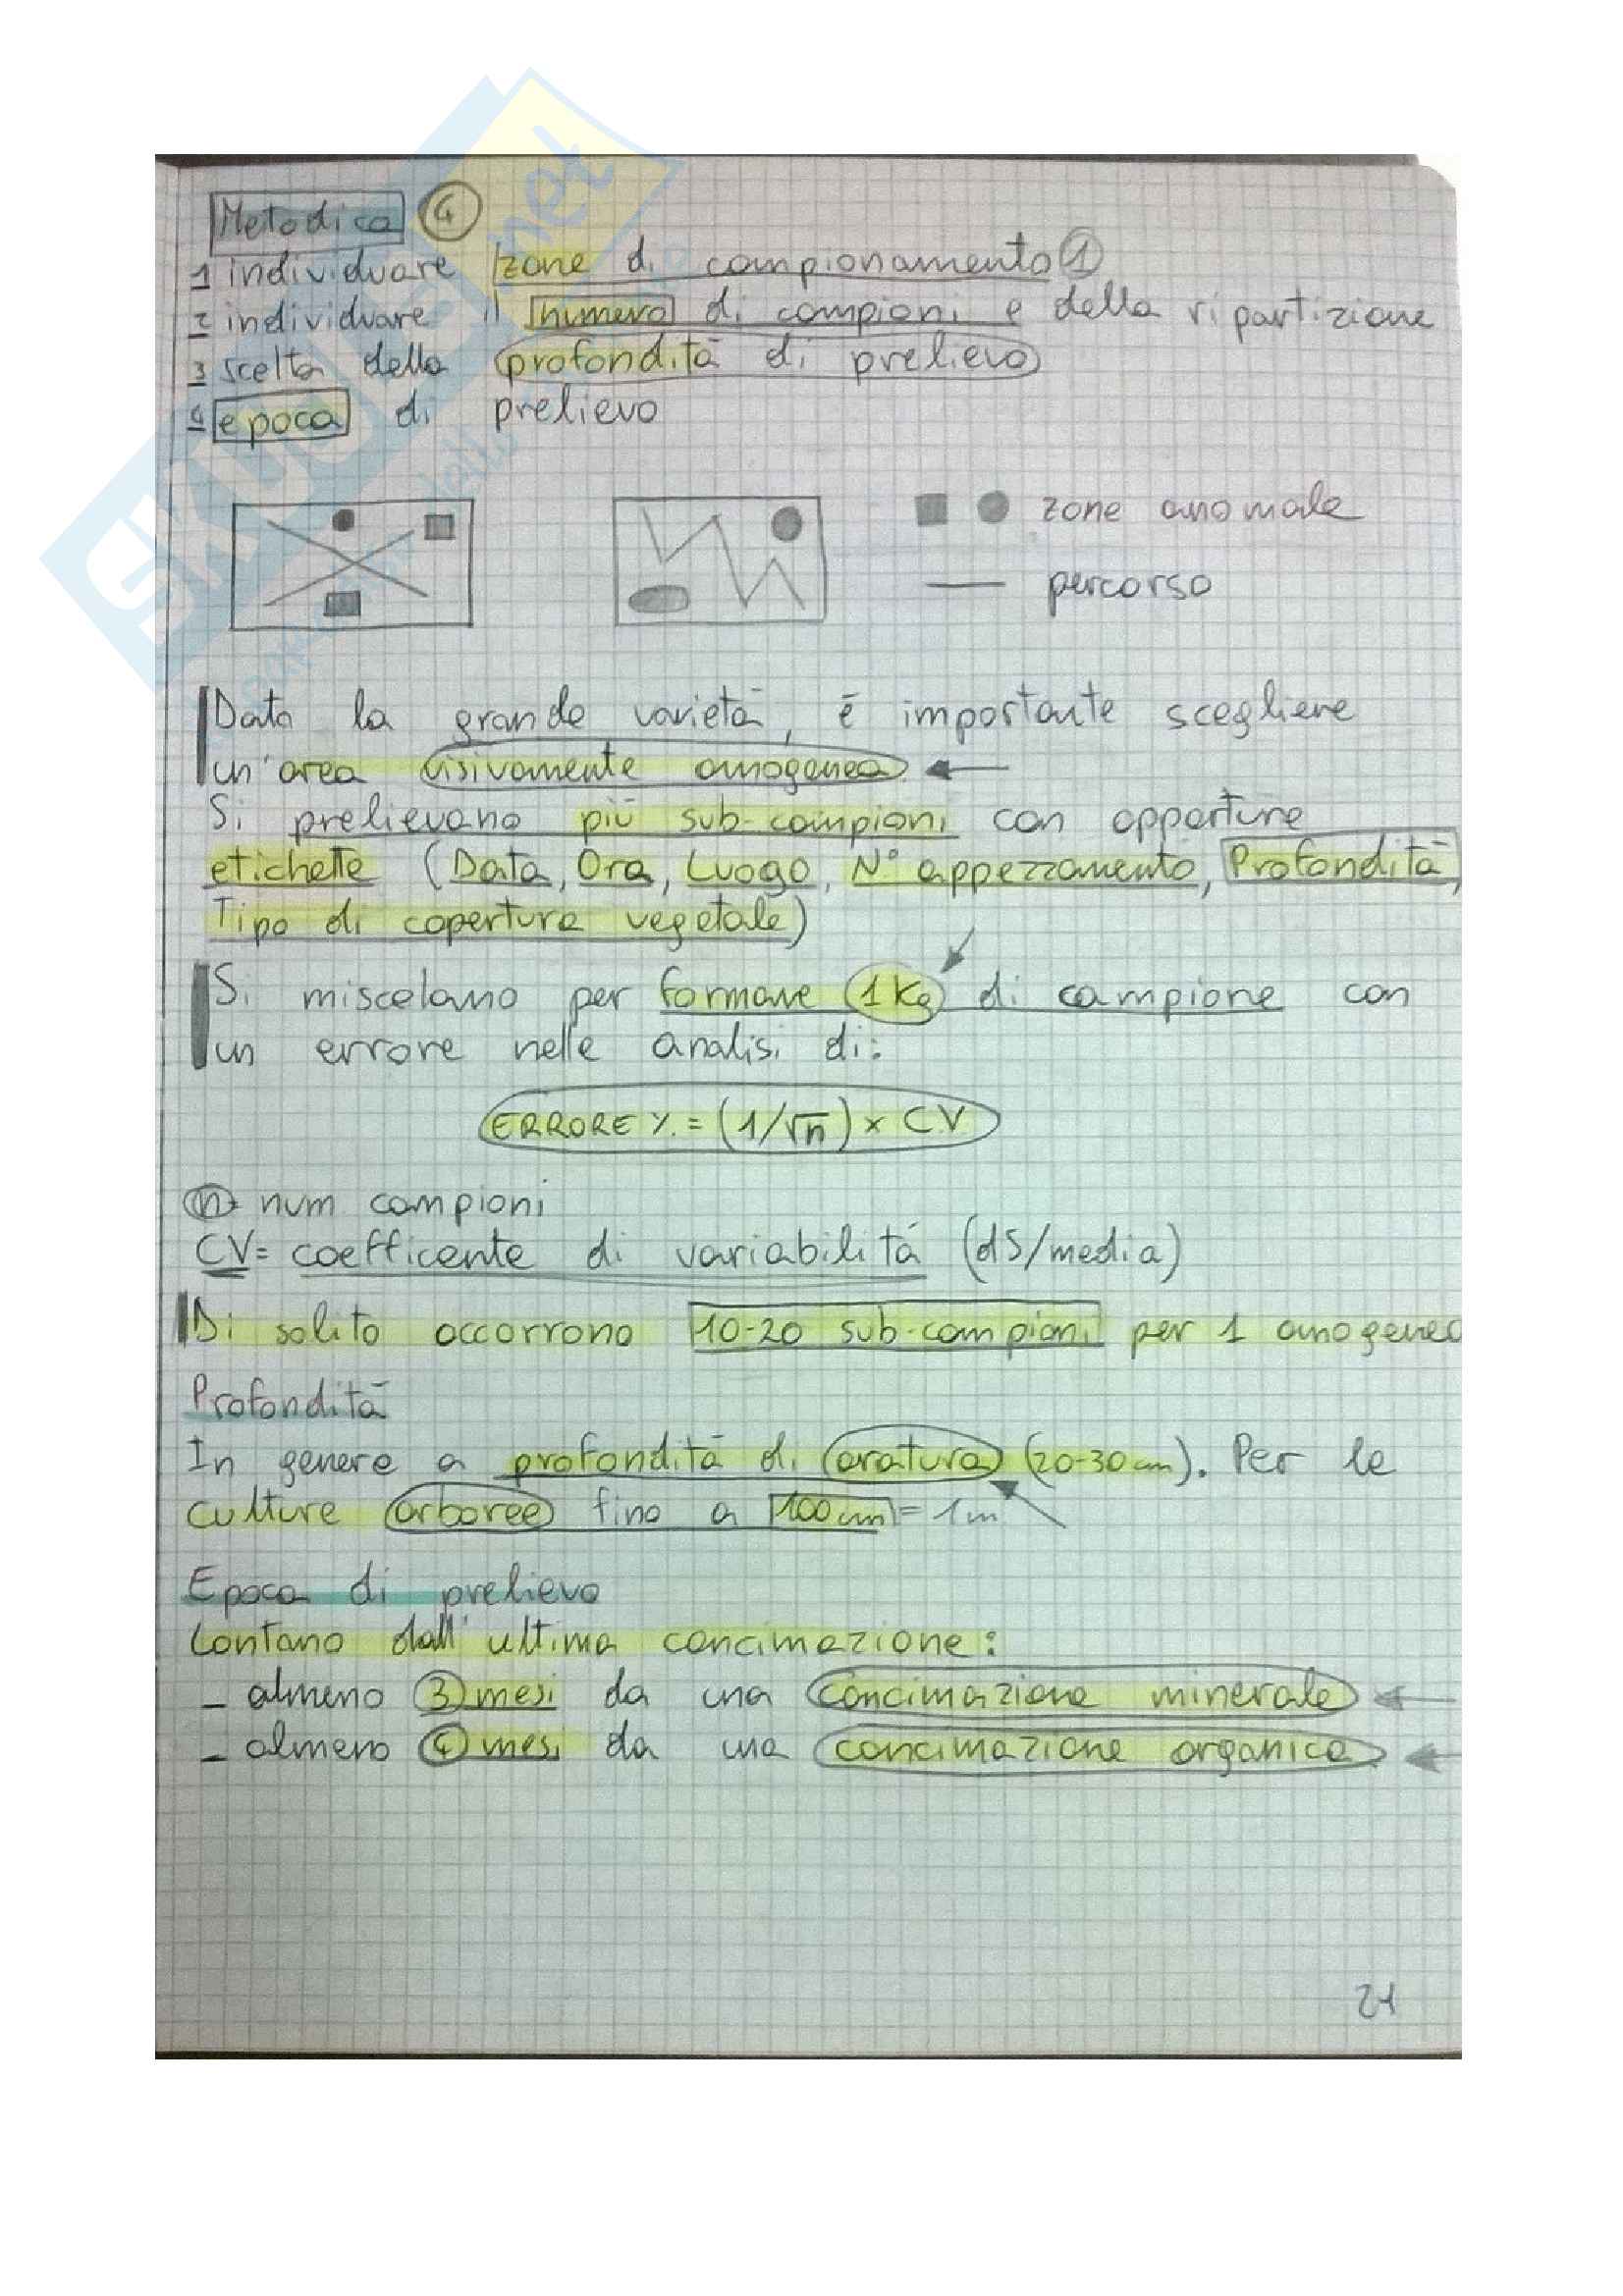 Metodica 4
1 individuare zone di campionamento 1
2 individuare il numero di campioni e della ripartizione
3 scelta della profondità di prelievo
4 epoca di prelievo
zone anomale
percorso
Data la grande varietà, è importante scegliere
un'area visivamente omogenea
Si prelievano più sub-campioni con opportune
etichette (Data, Ora, Luogo, N° appezzamento, Profondità,
Tipo di copertura vegetale)
Si miscelano per formare 1 Kg di campione con
un errore nelle analisi di:
ERRORE % = (1/√n) × CV
n= num campioni
CV= coefficente di variabilitá (dS/media)
Di solito occorrono 10-20 sub-campioni per 1 omogeneo
Profondità
In genere a profondità di aratura (20-30 cm). Per le
culture arboree fino a 100 cm = 1 m
Epoca di prelievo
Lontano dall'ultima concimazione:
- almeno 3 mesi da una concimazione minerale
- almeno 4 mesi da una concimazione organica
21